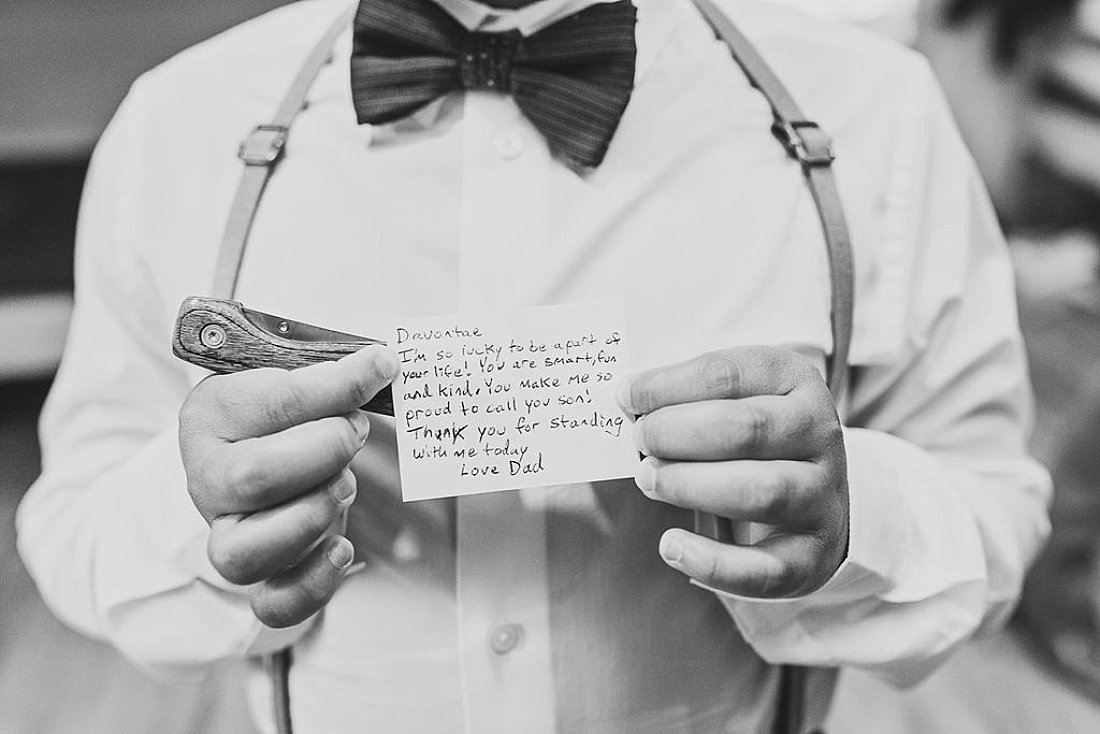 Davontae
I'm so lucky to be apart of
your life! You are smart, fun
and kind. You make me so
proud to call you son!
Thank you for standing
with me today
Love Dad